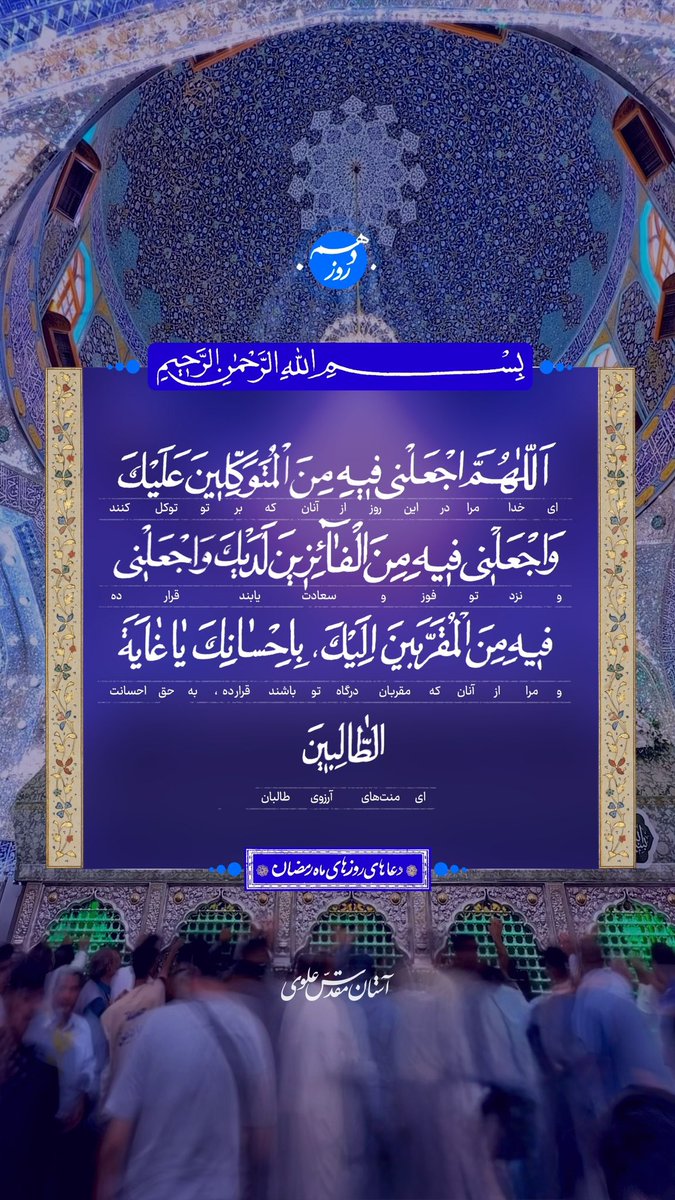 روز دهم
بِسْمِ اللهِ الرَّحْمٰنِ الرَّحِیمِ
اَللّٰهُمَّ اجْعَلْنی فیهِ مِنَ الْمُتَوَکِّلینَ عَلَیْكَ
ای خدا مرا در این روز از آنان که بر تو توکل کنند
وَاجْعَلْنی فیهِ مِنَ الْفٰآئِزینَ لَدَیْكَ وَاجْعَلْنی
و نزد تو فوز و سعادت یابند قرار ده
فیهِ مِنَ الْمُقَرَّبینَ اِلَیْكَ، بِاِحْسٰانِكَ یٰا غٰایَةَ
و مرا از آنان که مقربان درگاه تو باشند قرارده، به حق احسانت
الطّٰالِبینَ
ای منت‌های آرزوی طالبان
دعاهای روزهای ماه رمضان
آستان مقدّس علوی